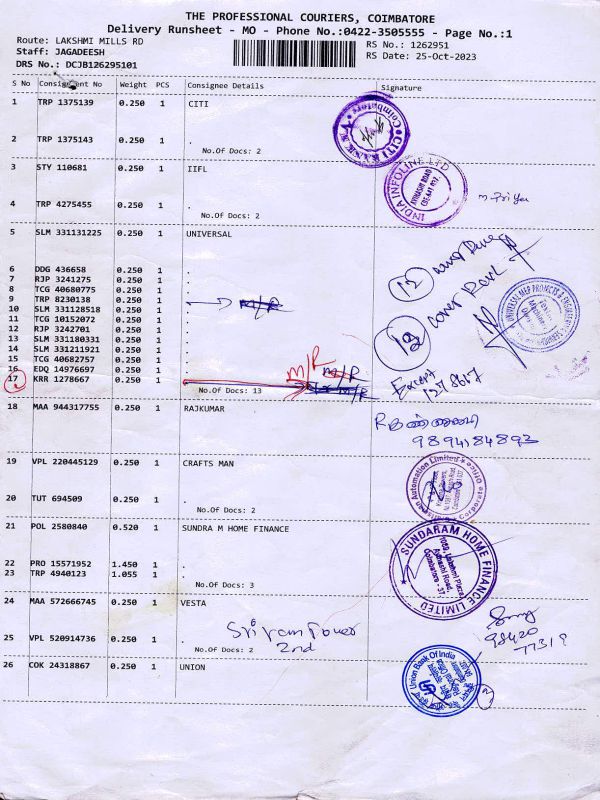 THE PROFESSIONAL COURIERS, COIMBATORE
Delivery Runsheet - MO - Phone No.:0422-3505555 - Page No.:1
Route: LAKSHMI MILLS RD
RS No.: 1262951
Staff: JAGADEESH
RS Date: 25-Oct-2023
DRS No.: DCJB126295101
S No Consignment No Weight PCS Consignee Details Signature
1 TRP 1375139 0.250 1 CITI
2 TRP 1375143 0.250 1 .
No.Of Docs: 2
CITI BANK
Coimbatore
3 STY 110681 0.250 1 IIFL
4 TRP 4275455 0.250 1 .
No.Of Docs: 2
INDIA INFOLINE LTD
5 SLM 331131225 0.250 1 UNIVERSAL
6 DDG 436658 0.250 1 .
7 RJP 3241275 0.250 1 .
8 TCG 40680775 0.250 1 .
9 TRP 8230138 0.250 1 . M/R
10 SLM 331128518 0.250 1 .
11 TCG 10152072 0.250 1 .
12 RJP 3242701 0.250 1 .
13 SLM 331180331 0.250 1 .
14 SLM 331211921 0.250 1 .
15 TCG 40682757 0.250 1 .
16 EDQ 14976697 0.250 1 .
17 KRR 1278667 0.250 1 M/R
No.Of Docs: 13
12 cover
12 cover
Except
1278667
18 MAA 944317755 0.250 1 RAJKUMAR
9894184893
19 VPL 220445129 0.250 1 CRAFTS MAN
20 TUT 694509 0.250 1 .
No.Of Docs: 2
Automation Limited
21 POL 2580840 0.520 1 SUNDRA M HOME FINANCE
22 PRO 15571952 1.450 1 .
23 TRP 4940123 1.055 1 .
No.Of Docs: 3
SUNDARAM HOME FINANCE LIMITED
24 MAA 572666745 0.250 1 VESTA
25 VPL 520914736 0.250 1 .
No.Of Docs: 2
Sri ram Tower
2nd
98420
77319
26 COK 24318867 0.250 1 UNION
Union Bank Of India
2